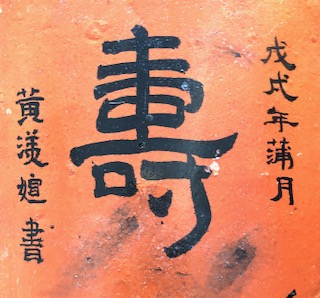 戊戌年蒲月
壽
黃羕媗書